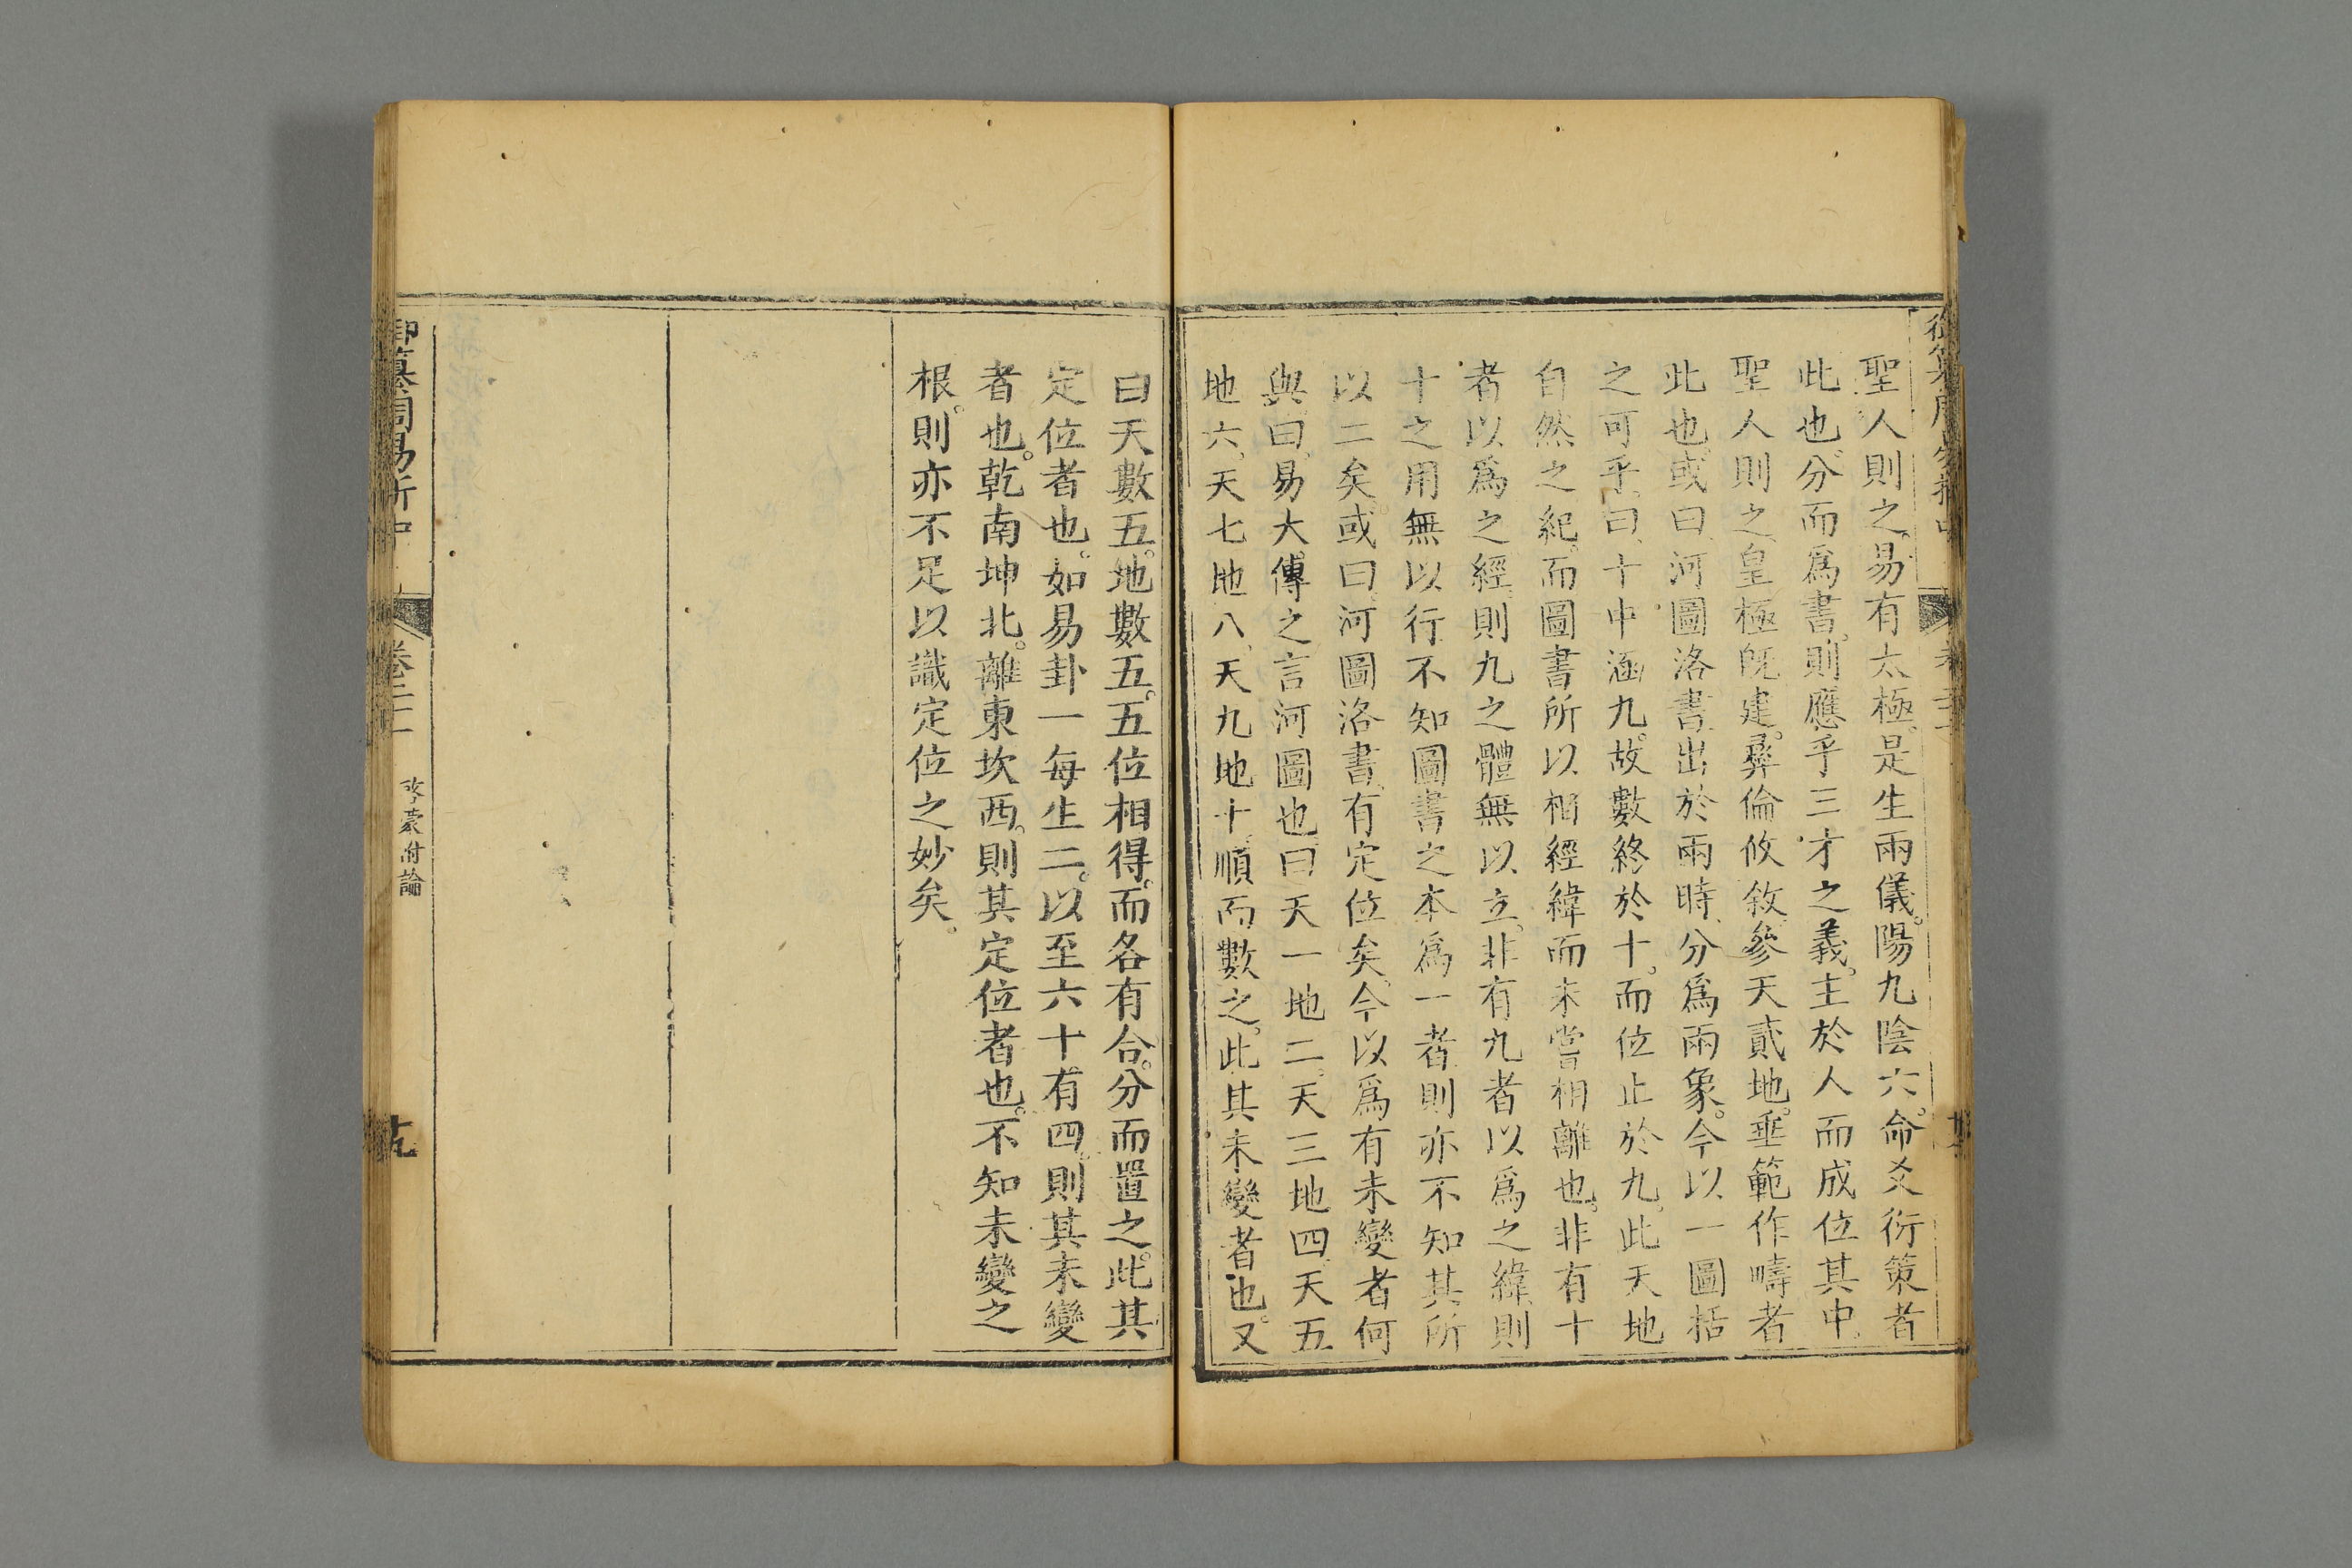 聖人則之易有太極。是生兩儀。陽九陰六。命爻衍策者
此也。分而爲書。則應乎三才之義。主於人而成位其中。
聖人則之。皇極旣建。彛倫攸敘。參天貳地。垂範作疇者
此也。或曰。河圖洛書。出於兩時。分爲兩象。今以一圖括
之可乎。曰。十中涵九。故數終於十。而位止於九。此天地
自然之紀。而圖書所以相經緯而未嘗相離也。非有十
者以爲之經。則九之體無以立。非有九者以爲之緯。則
十之用無以行。不知圖書之本爲一者。則亦不知其所
以二矣。或曰。河圖洛書。有定位矣。今以爲有未變者何
與。曰。易大傳之言河圖也。曰天一地二。天三地四。天五
地六。天七地八。天九地十。順而數之。此其未變者也。又
曰天數五。地數五。五位相得。而各有合。分而置之。此其
定位者也。如易卦一每生二。以至六十有四。則其未變
者也。乾南坤北。離東坎西。則其定位者也。不知未變之
根。則亦不足以識定位之妙矣。
御纂周易折中 卷二十一 啓蒙附論